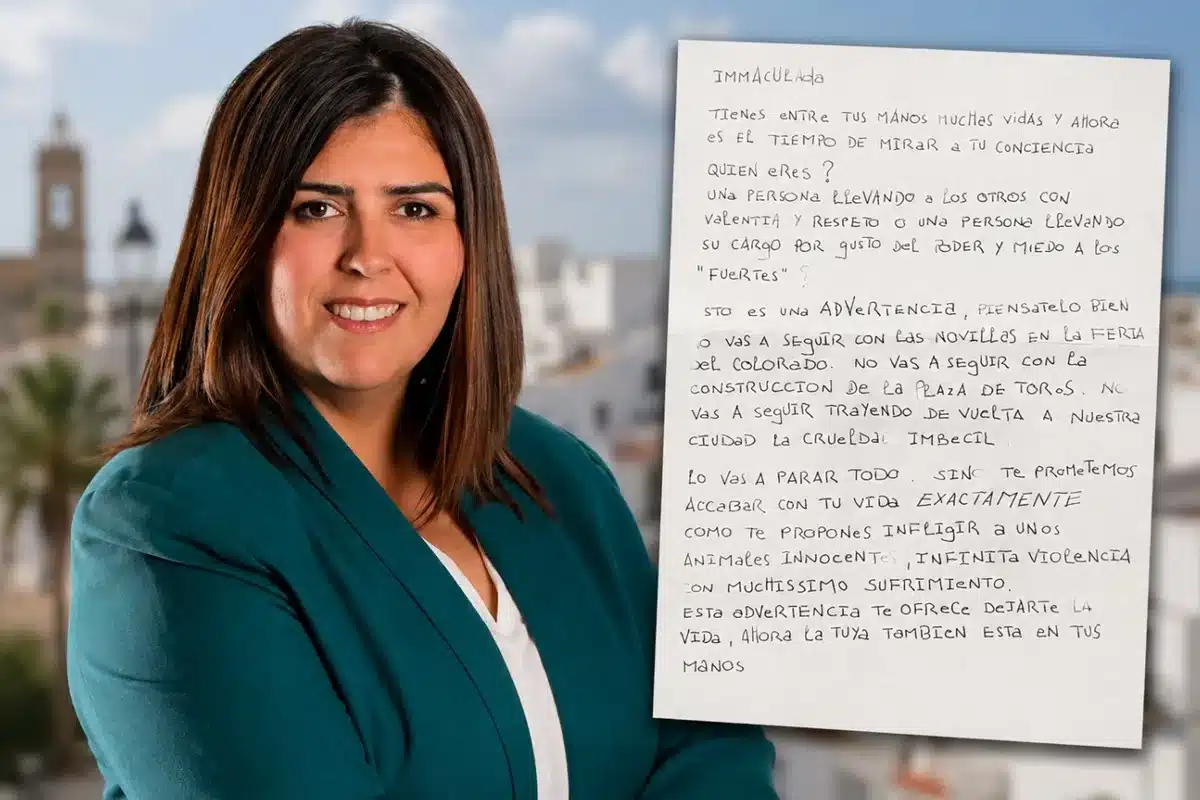 IMMACULAda
TIENES ENTRE TUS MANOS MUCHAS VIDAS Y AHORA
ES EL TIEMPO DE MIRAR A TU CONCIENCIA
QUIEN ERES ?
UNA PERSONA LLEVANDO A LOS OTROS CON
VALENTIA Y RESPETO O UNA PERSONA LLEVANDO
SU CARGO POR GUSTO DEL PODER Y MIEDO A LOS
"FUERTES" ?
STO ES UNA ADVERTENCIA, PIENSATELO BIEN
O VAS A SEGUIR CON LAS NOVILLAS EN LA FERIA
DEL COLORADO. NO VAS A SEGUIR CON LA
CONSTRUCCION DE LA PLAZA DE TOROS. NO
VAS A SEGUIR TRAYENDO DE VUELTA A NUESTRA
CIUDAD LA CRUELDAD IMBECIL
LO VAS A PARAR TODO. SINO TE PROMETEMOS
ACCABAR CON TU VIDA EXACTAMENTE
COMO TE PROPONES INFLIGIR A UNOS
ANIMALES INNOCENTES, INFINITA VIOLENCIA
CON MUCHISSIMO SUFRIMIENTO.
ESTA ADVERTENCIA TE OFRECE DEJARTE LA
VIDA, AHORA LA TUYA TAMBIEN ESTA EN TUS
MANOS